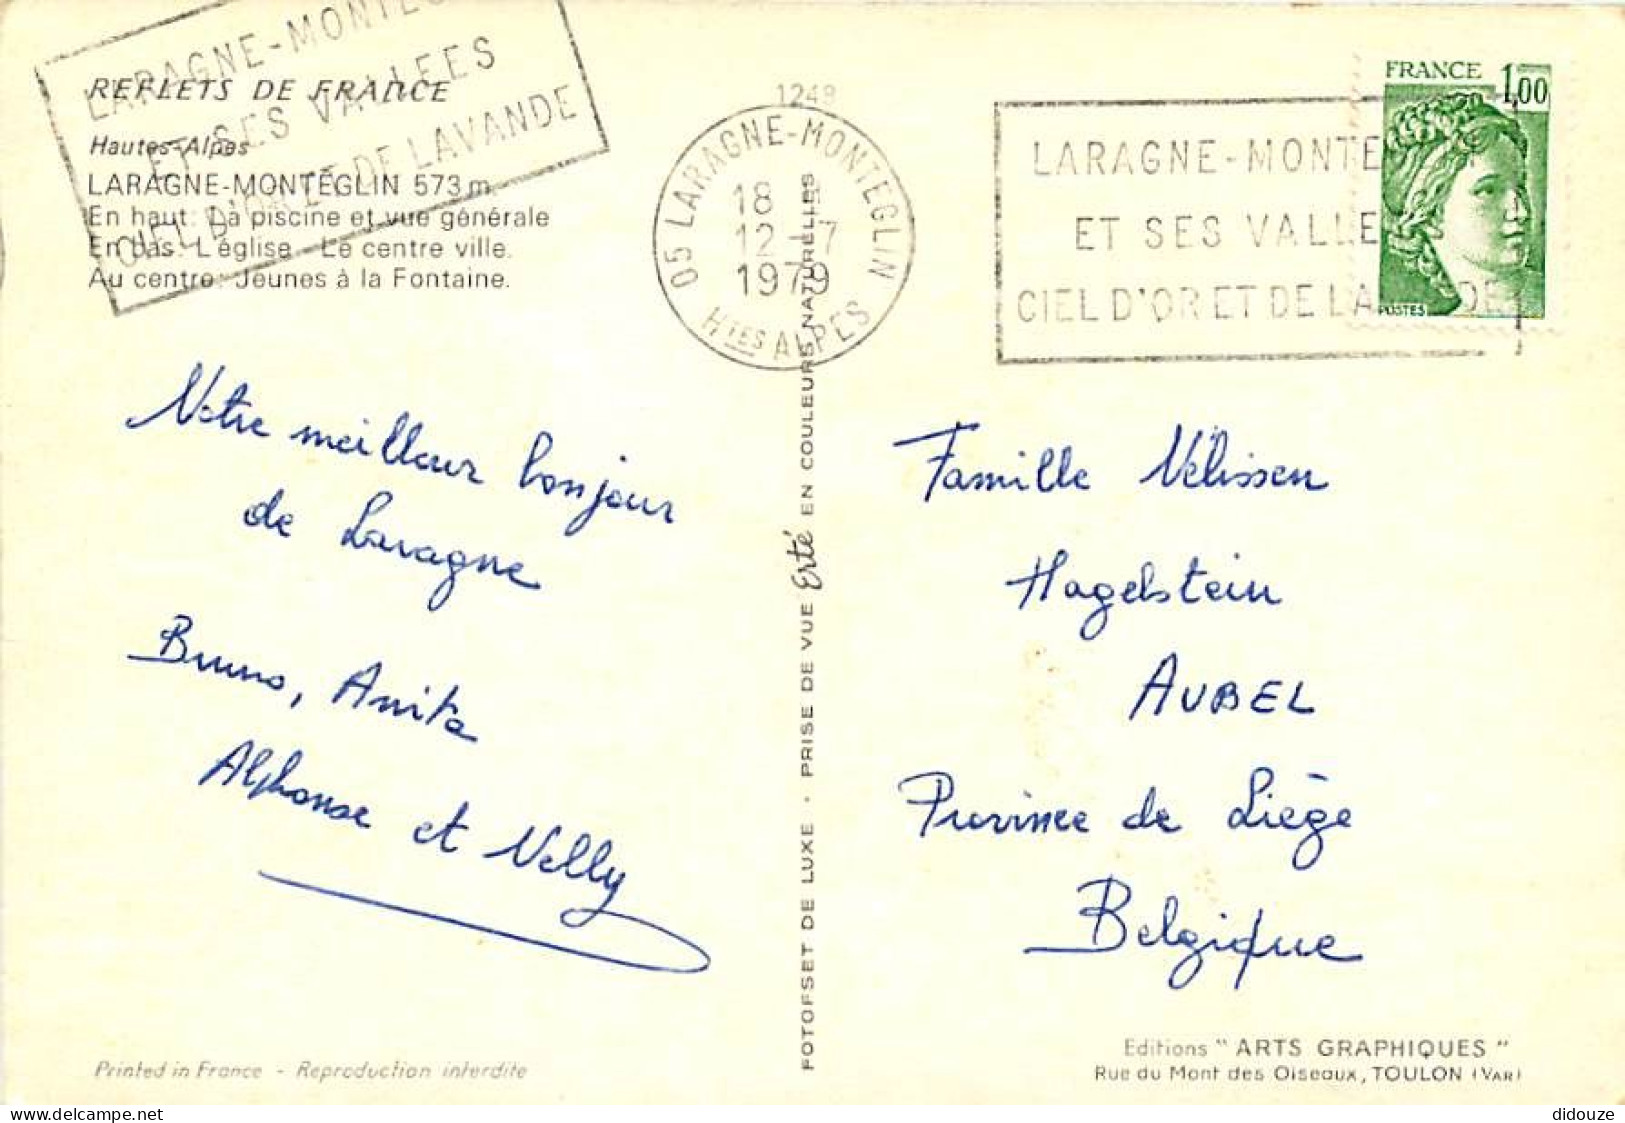 LARAGNE-MONTEG
ET SES VALLEES
CIEL D'OR ET DE LAVANDE
REFLETS DE FRANCE
Hautes-Alpes
LARAGNE-MONTÉGLIN 573 m
En haut : La piscine et vue générale
En bas : L'église - Le centre ville.
Au centre : Jeunes à la Fontaine.
Notre meilleur bonjour
de Laragne
Bruno, Anita
Alphonse et Nelly
Printed in France - Reproduction interdite
1248
05 LARAGNE-MONTEGLIN
18 H
12-7
1979
HTES ALPES
FOTOFSET DE LUXE - PRISE DE VUE Erté EN COULEURS NATURELLES
LARAGNE-MONTE
ET SES VALLE
CIEL D'OR ET DE LA DE
FRANCE 1,00
POSTES
Famille Velissen
Hagelstein
AUBEL
Province de Liège
Belgique
Editions "ARTS GRAPHIQUES"
Rue du Mont des Oiseaux, TOULON (VAR)
didouze